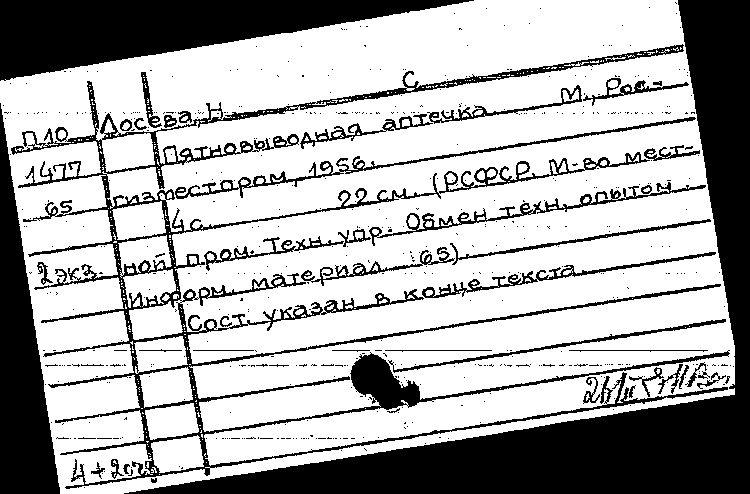 С
П10 Досева, Н.
Пятновыводная аптечка М., Рос-
1477
65 гизместпром, 1956.
4 с. 22 см. (РСФСР. М-во мест-
2 экз. ной пром. Техн. упр. Обмен техн. опытом.
Информ. материал 65).
Сост. указан в конце текста.
4+2